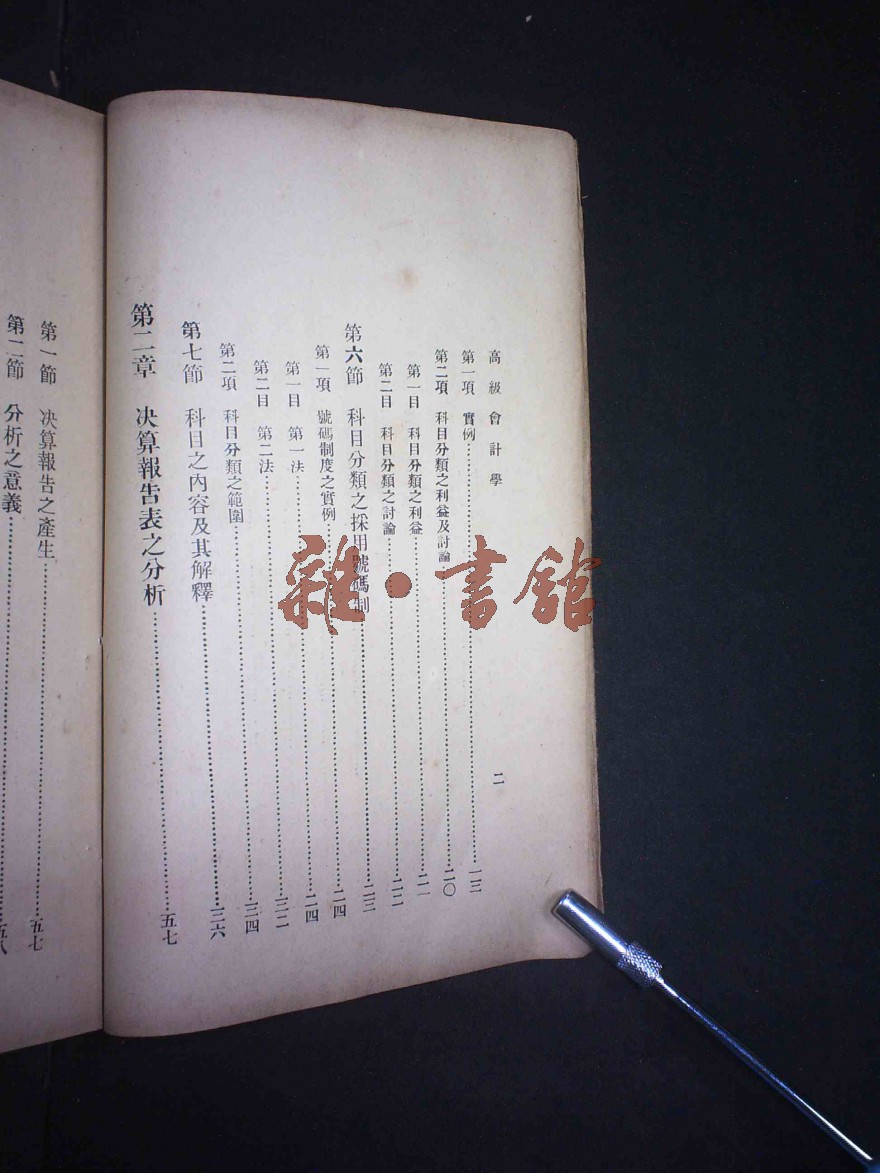 高級會計學 二
第一項 實例……一三
第二項 科目分類之利益及討論……二〇
第一目 科目分類之利益……二一
第二目 科目分類之討論……二二
第六節 科目分類之採用號碼制……二三
第一項 號碼制度之實例……二四
第一目 第一法……二四
第二目 第二法……三二
第二項 科目分類之範圍……三四
第七節 科目之內容及其解釋……三六
第二章 决算報告表之分析……五七
第一節 决算報告之產生……五七
第二節 分析之意義……五八
雜·書館